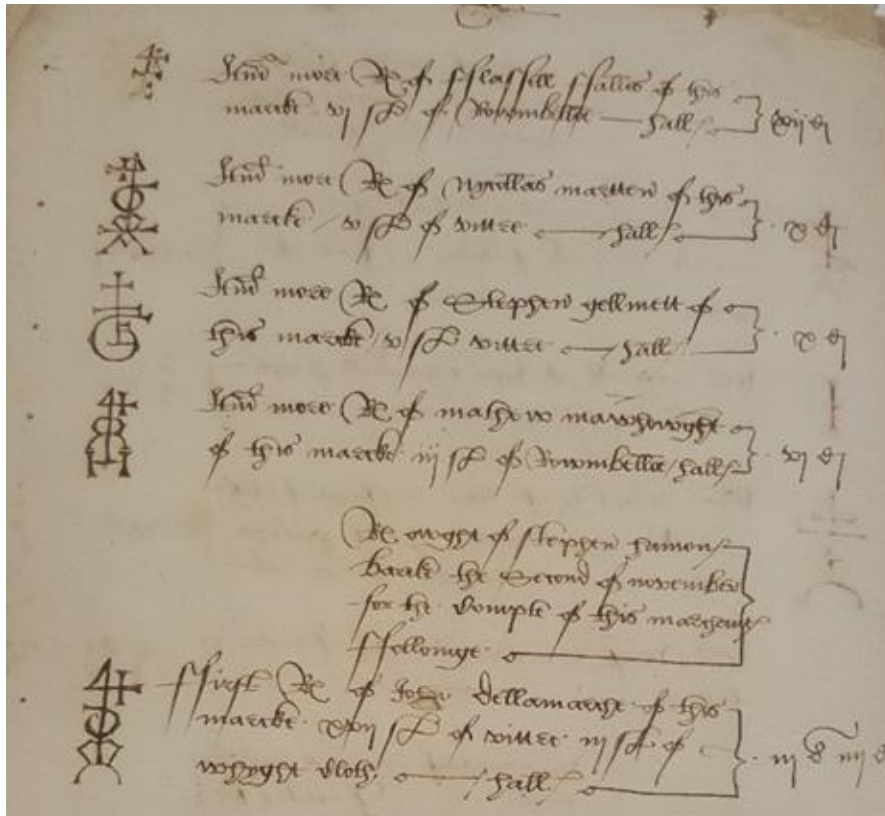 Itm more R of fflassell ffalles of this
marcke vj sk of Rowmbelloe hall xij d
Itm more R of nycllas martten of this
marcke v sk of vittre hall x d
Itm more R of Stephen gellmett of
this marcke v sk vittre hall x d
Itm more R of mathew
of this marcke iij sk of Rowmbelloe hall vj d
R owght of stephen hamons
barke the Second of november
for the Compte of this marchantes
ffollowige
ffirst R of John dellamarche of this
marcke xvij sk of vittre iij sk of
whyght Cloth hall iij s iiij d